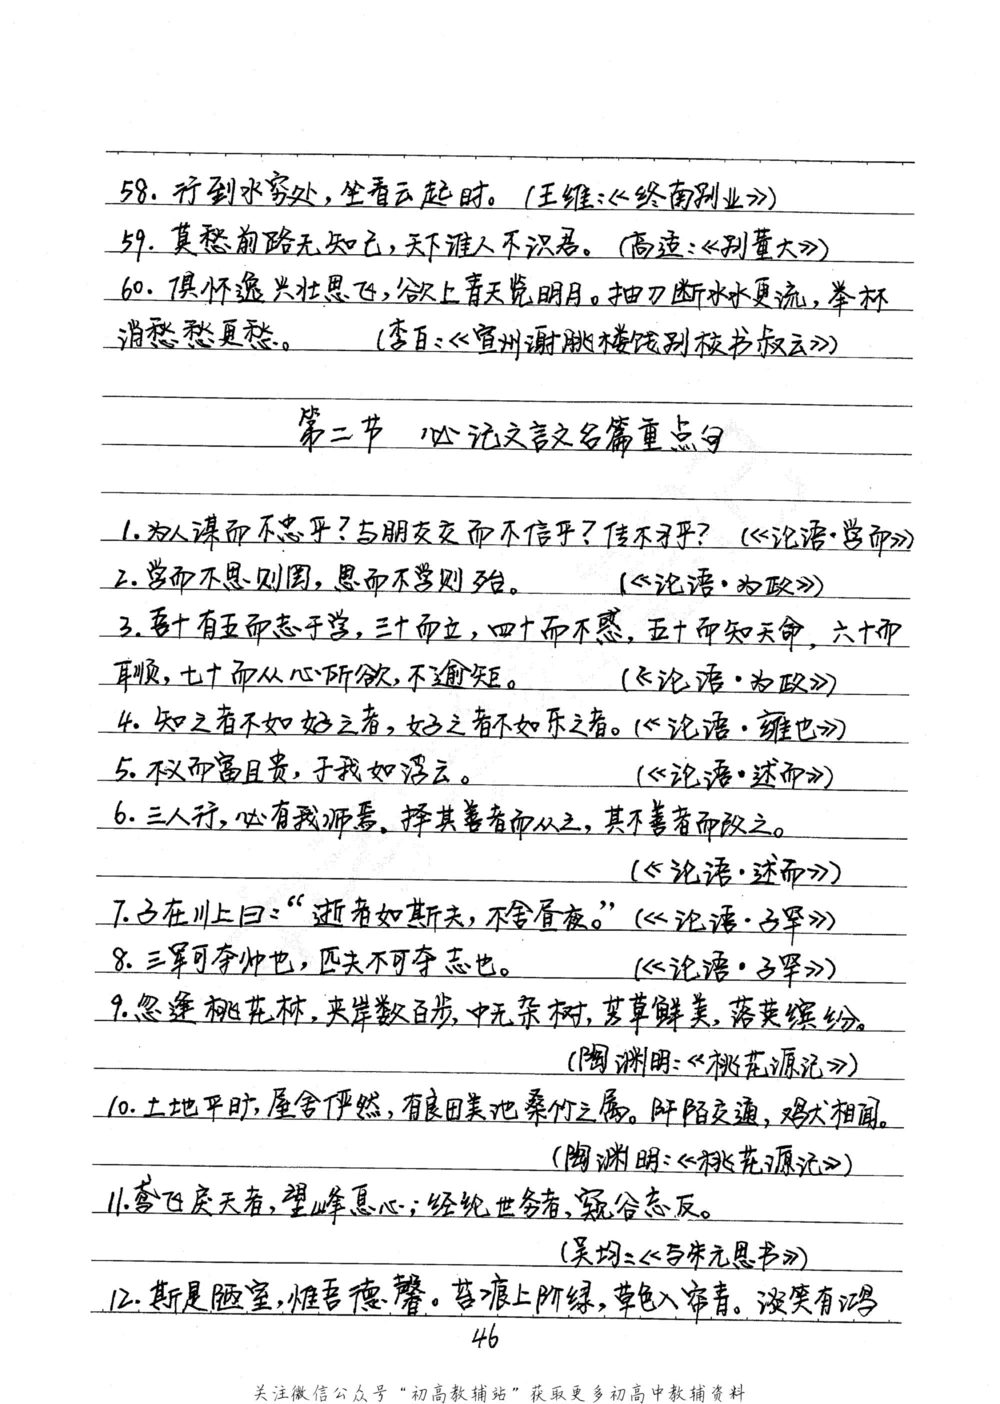 58. 行到水穷处，坐看云起时。（王维：《终南别业》）
59. 莫愁前路无知己，天下谁人不识君。（高适：《别董大》）
60. 俱怀逸兴壮思飞，欲上青天览明月。抽刀断水水更流，举杯
消愁愁更愁。（李白：《宣州谢朓楼饯别校书叔云》）
第二节 必记文言文名篇重点句
1. 为人谋而不忠乎？与朋友交而不信乎？传不习乎？（《论语·学而》）
2. 学而不思则罔，思而不学则殆。（《论语·为政》）
3. 吾十有五而志于学，三十而立，四十而不惑，五十而知天命，六十而
耳顺，七十而从心所欲，不逾矩。（《论语·为政》）
4. 知之者不如好之者，好之者不如乐之者。（《论语·雍也》）
5. 不义而富且贵，于我如浮云。（《论语·述而》）
6. 三人行，必有我师焉。择其善者而从之，其不善者而改之。
（《论语·述而》）
7. 子在川上曰：“逝者如斯夫，不舍昼夜。”（《论语·子罕》）
8. 三军可夺帅也，匹夫不可夺志也。（《论语·子罕》）
9. 忽逢桃花林，夹岸数百步，中无杂树，芳草鲜美，落英缤纷。
（陶渊明：《桃花源记》）
10. 土地平旷，屋舍俨然，有良田美池桑竹之属。阡陌交通，鸡犬相闻。
（陶渊明：《桃花源记》）
11. 鸢飞戾天者，望峰息心；经纶世务者，窥谷忘反。
（吴均：《与朱元思书》）
12. 斯是陋室，惟吾德馨。苔痕上阶绿，草色入帘青。谈笑有鸿
46
关注微信公众号“初高教辅站”获取更多初高中教辅资料